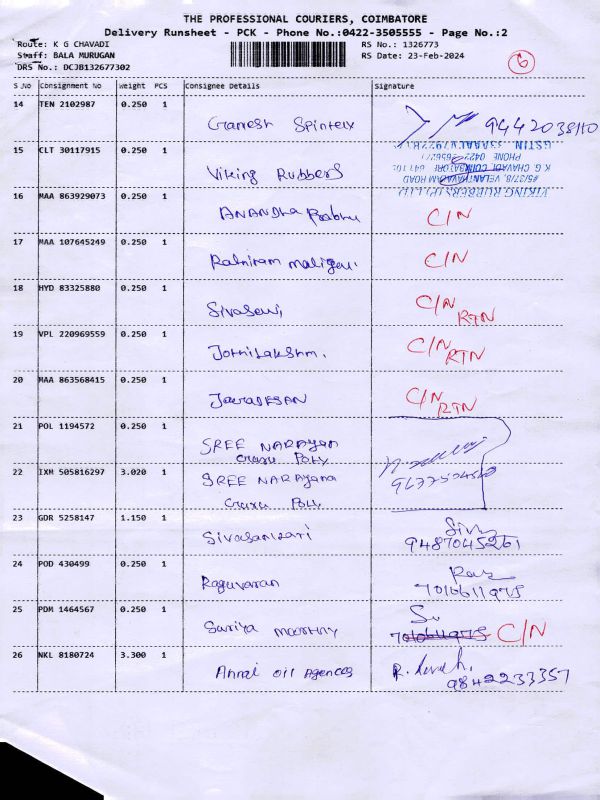 THE PROFESSIONAL COURIERS, COIMBATORE
Delivery Runsheet - PCK - Phone No.:0422-3505555 - Page No.:2
Route: K G CHAVADI
RS No.: 1326773
Staff: BALA MURUGAN
RS Date: 23-Feb-2024
DRS No.: DCJB132677302
6
S.No Consignment No Weight PCS Consignee Details Signature
14 TEN 2102987 0.250 1 Ganesh 9442038110
15 CLT 30117915 0.250 1 Viking Rubbers
VIKING RUBBERS (P) LTD
VELANTHAVALAM ROAD
K. G. CHAVADI, COIMBATORE
PHONE 0422
GSTIN
16 MAA 863929073 0.250 1 ANANDha Prabhu C/N
17 MAA 107645249 0.250 1 C/N
18 HYD 83325880 0.250 1 C/N RTN
19 VPL 220969559 0.250 1 C/N RTN
20 MAA 863568415 0.250 1 C/N RTN
21 POL 1194572 0.250 1 SREE NARAYAN
Guru Poly
22 IXM 505816297 3.020 1 SREE NARAYana
Guru Poly
23 GDR 5258147 1.150 1 Sivasankari
9487045261
24 POD 430499 0.250 1 Raguvaran
7016611975
25 PDM 1464567 0.250 1 Suriya moorthy C/N
26 NKL 8180724 3.300 1 Annai oil Agences
9842233357